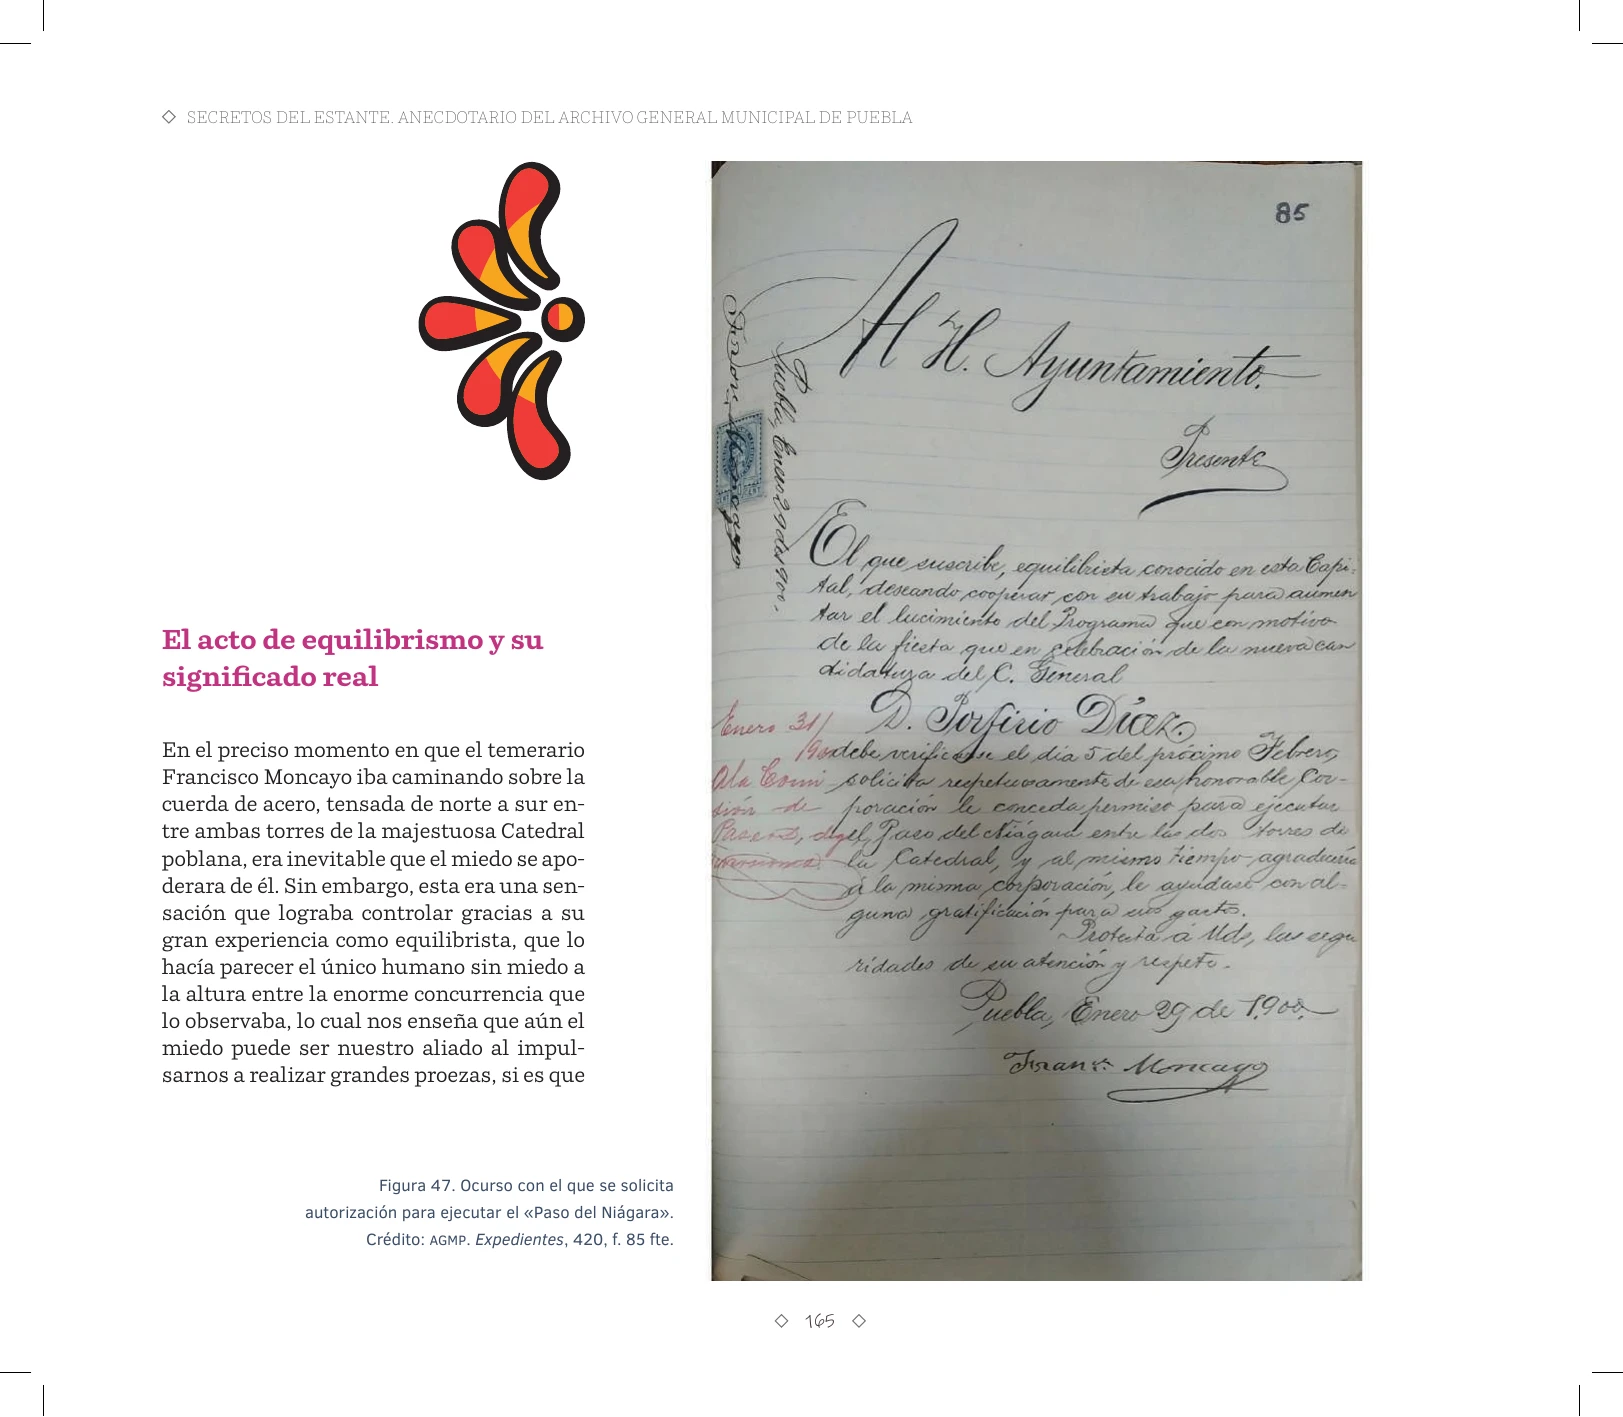 ◇ SECRETOS DEL ESTANTE. ANECDOTARIO DEL ARCHIVO GENERAL MUNICIPAL DE PUEBLA
El acto de equilibrismo y su
significado real
En el preciso momento en que el temerario
Francisco Moncayo iba caminando sobre la
cuerda de acero, tensada de norte a sur en-
tre ambas torres de la majestuosa Catedral
poblana, era inevitable que el miedo se apo-
derara de él. Sin embargo, esta era una sen-
sación que lograba controlar gracias a su
gran experiencia como equilibrista, que lo
hacía parecer el único humano sin miedo a
la altura entre la enorme concurrencia que
lo observaba, lo cual nos enseña que aún el
miedo puede ser nuestro aliado al impul-
sarnos a realizar grandes proezas, si es que
Figura 47. Ocurso con el que se solicita
autorización para ejecutar el «Paso del Niágara».
Crédito: AGMP. Expedientes, 420, f. 85 fte.
85
Al H. Ayuntamiento.
Presente
El que suscribe, equilibrista conocido en esta Capi-
tal, deseando cooperar con su trabajo para aumen
tar el lucimiento del Programa que con motivo
de la fiesta que en celebración de la nueva can
didatura del C. General
D. Porfirio Díaz.
debe verificarse el día 5 del próximo Febrero,
solicita respetuosamente de esa honorable Cor-
poración le conceda permiso para ejecutar
el Paso del Niágara entre las dos torres de
la Catedral, y al mismo tiempo agradecería
á la misma corporación, le ayudase con al-
guna gratificación para sus gastos.
Protesta á Uds, las segu
ridades de su atención y respeto.
Puebla, Enero 29 de 1.900.
Franco. Moncayo
Puebla, Enero 29 de 1900.
Moncayo
Enero 31/
900
A la Comi
sión de
◇ 165 ◇